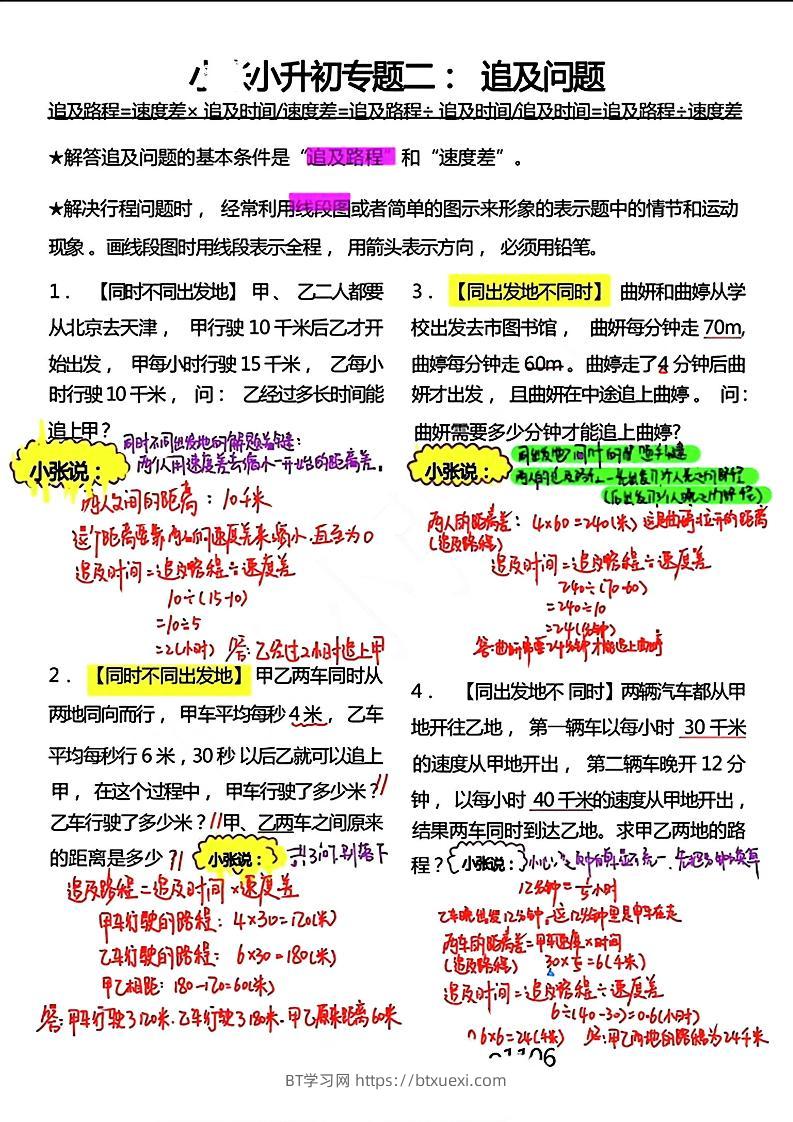 小张小升初专题二： 追及问题
追及路程=速度差× 追及时间/速度差=追及路程÷ 追及时间/追及时间=追及路程÷速度差
★解答追及问题的基本条件是“追及路程”和“速度差”。
★解决行程问题时， 经常利用线段图或者简单的图示来形象的表示题中的情节和运动
现象 。画线段图时用线段表示全程， 用箭头表示方向， 必须用铅笔。
1． 【同时不同出发地】 甲、 乙二人都要
从北京去天津， 甲行驶 10 千米后乙才开
始出发， 甲每小时行驶 15 千米， 乙每小
时行驶 10 千米， 问： 乙经过多长时间能
追上甲?
同时不同出发地的解题关键：
两人用速度差去缩小一开始的距离差。
小张说：
两人之间的距离：10千米
这个距离要靠两人的速度差来缩小.直至为0
追及时间=追及路程÷速度差
10÷(15-10)
=10÷5
=2(小时) 答:乙经过2小时追上甲
2． 【同时不同出发地】 甲乙两车同时从
两地同向而行， 甲车平均每秒 4 米， 乙车
平均每秒行 6 米，30 秒 以后乙就可以追上
甲， 在这个过程中， 甲车行驶了多少米?
乙车行驶了多少米? 甲、乙两车之间原来
的距离是多少?
小张说：
共3问.别落下
追及路程=追及时间×速度差
甲车行驶的路程：4×30=120(米)
乙车行驶的路程：6×30=180(米)
甲乙相距：180-120=60(米)
答:甲车行驶了120米.乙车行驶了180米.甲乙原来距离60米
3． 【同出发地不同时】 曲妍和曲婷从学
校出发去市图书馆， 曲妍每分钟走 70m,
曲婷每分钟走 60m 。曲婷走了4 分钟后曲
妍才出发， 且曲妍在中途追上曲婷 。 问：
曲妍需要多少分钟才能追上曲婷?
小张说：
两人的距离差：4×60=240(米)
(追及路程)
追及时间=追及路程÷速度差
240÷(70-60)
=240÷10
=24(分钟)
答:曲妍需要24分钟才能追上曲婷
4． 【同出发地不 同时】两辆汽车都从甲
地开往乙地， 第一辆车以每小时 30 千米
的速度从甲地开出， 第二辆车晚开 12 分
钟， 以每小时 40 千米的速度从甲地开出，
结果两车同时到达乙地。求甲乙两地的路
程?
小张说：
12分钟=1/5小时
乙车晚出发12分钟,这12分钟里是甲车在走
两车的距离差=甲车速度×时间
(追及路程) 30×1/5=6(千米)
追及时间=追及路程÷速度差
6÷(40-30)=0.6(小时)
答:甲乙两地的路程为24千米
BT学习网 https://btxuexi.com